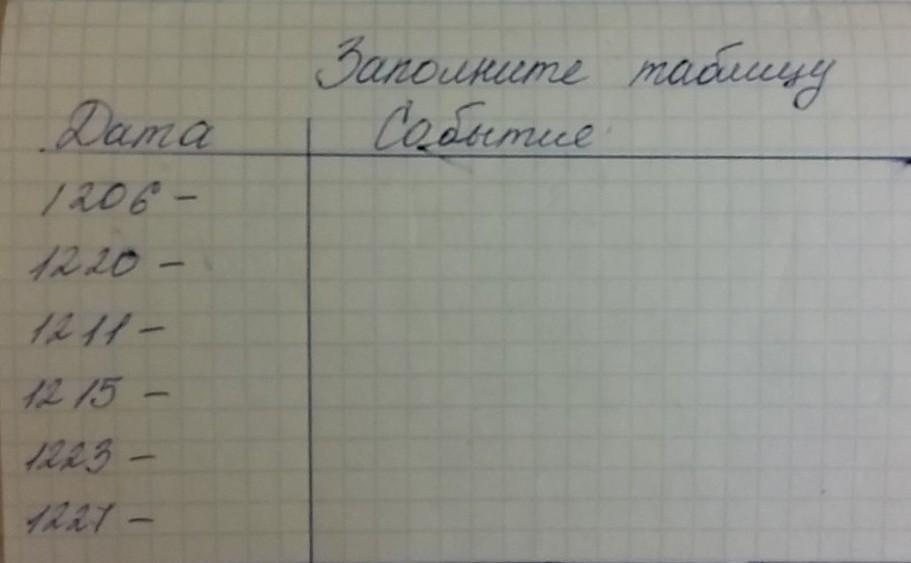 Заполните таблицу
Дата Событие
1206 -
1220 -
1211 -
1215 -
1223 -
1227 -